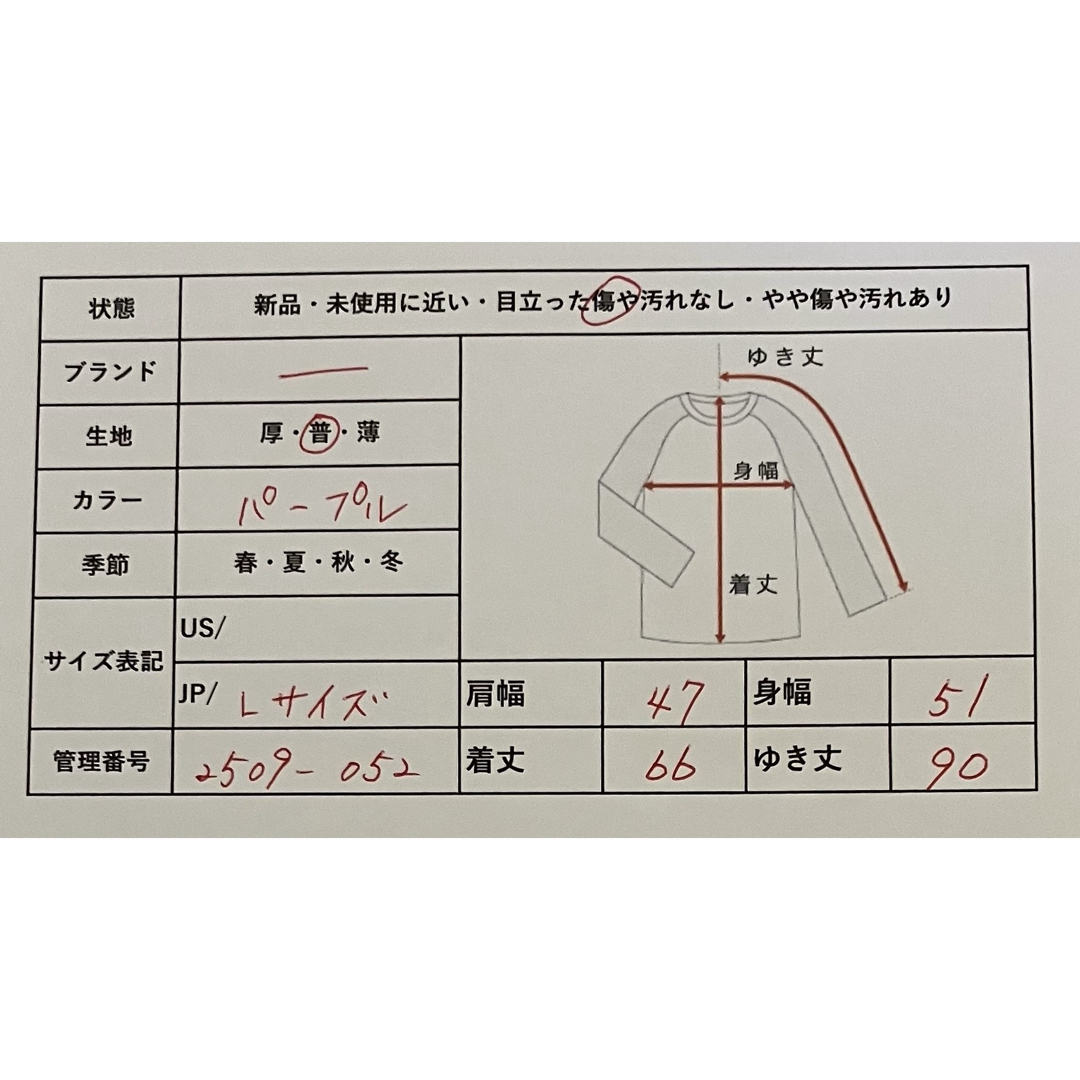 状態 新品・未使用に近い・目立った傷や汚れなし・やや傷や汚れあり
ブランド ―
生地 厚・普・薄
カラー パープル
季節 春・夏・秋・冬
サイズ表記 US/
JP/ Lサイズ
管理番号 2509-052
ゆき丈
身幅
着丈
肩幅 47 身幅 51
着丈 66 ゆき丈 90